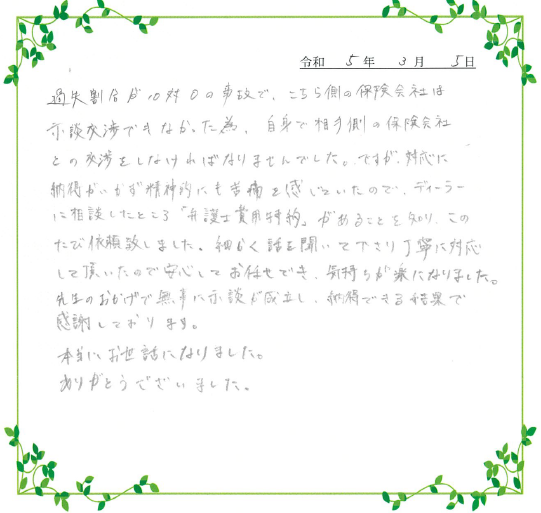 令和 5年 3月 5日
過失割合が10対0の事故で、こちら側の保険会社は
示談交渉できなかった為、自身で相手側の保険会社
との交渉をしなければなりませんでした。ですが、対応に
納得がいかず精神的にも苦痛を感じていたので、ディーラー
に相談したところ「弁護士費用特約」があることを知り、この
たび依頼致しました。細かく話を聞いて下さり丁寧に対応
して頂いたので安心してお任せでき、気持ちが楽になりました。
先生のおかげで無事に示談が成立し、納得できる結果で
感謝しております。
本当にお世話になりました。
ありがとうございました。